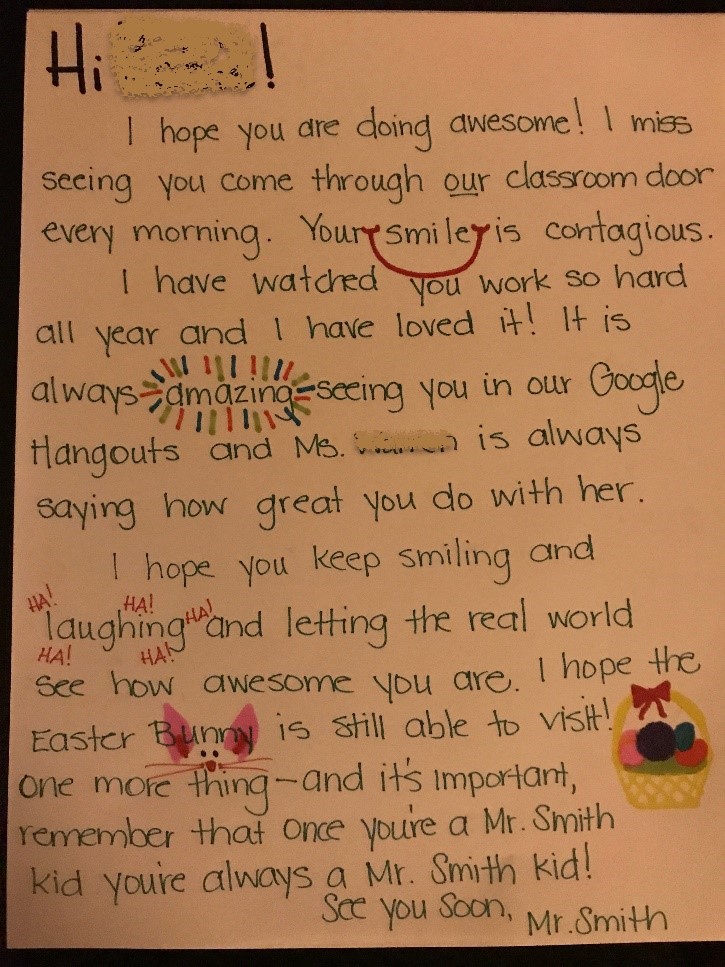 Hi !
I hope you are doing awesome! I miss
seeing you come through our classroom door
every morning. Your smile is contagious.
I have watched you work so hard
all year and I have loved it! It is
always amazing seeing you in our Google
Hangouts and Ms. is always
saying how great you do with her.
I hope you keep smiling and
HA! HA! HA!
laughing and letting the real world
HA! HA!
see how awesome you are. I hope the
Easter Bunny is still able to visit!
One more thing—and it's important,
remember that once you're a Mr. Smith
kid you're always a Mr. Smith kid!
See you soon, Mr. Smith